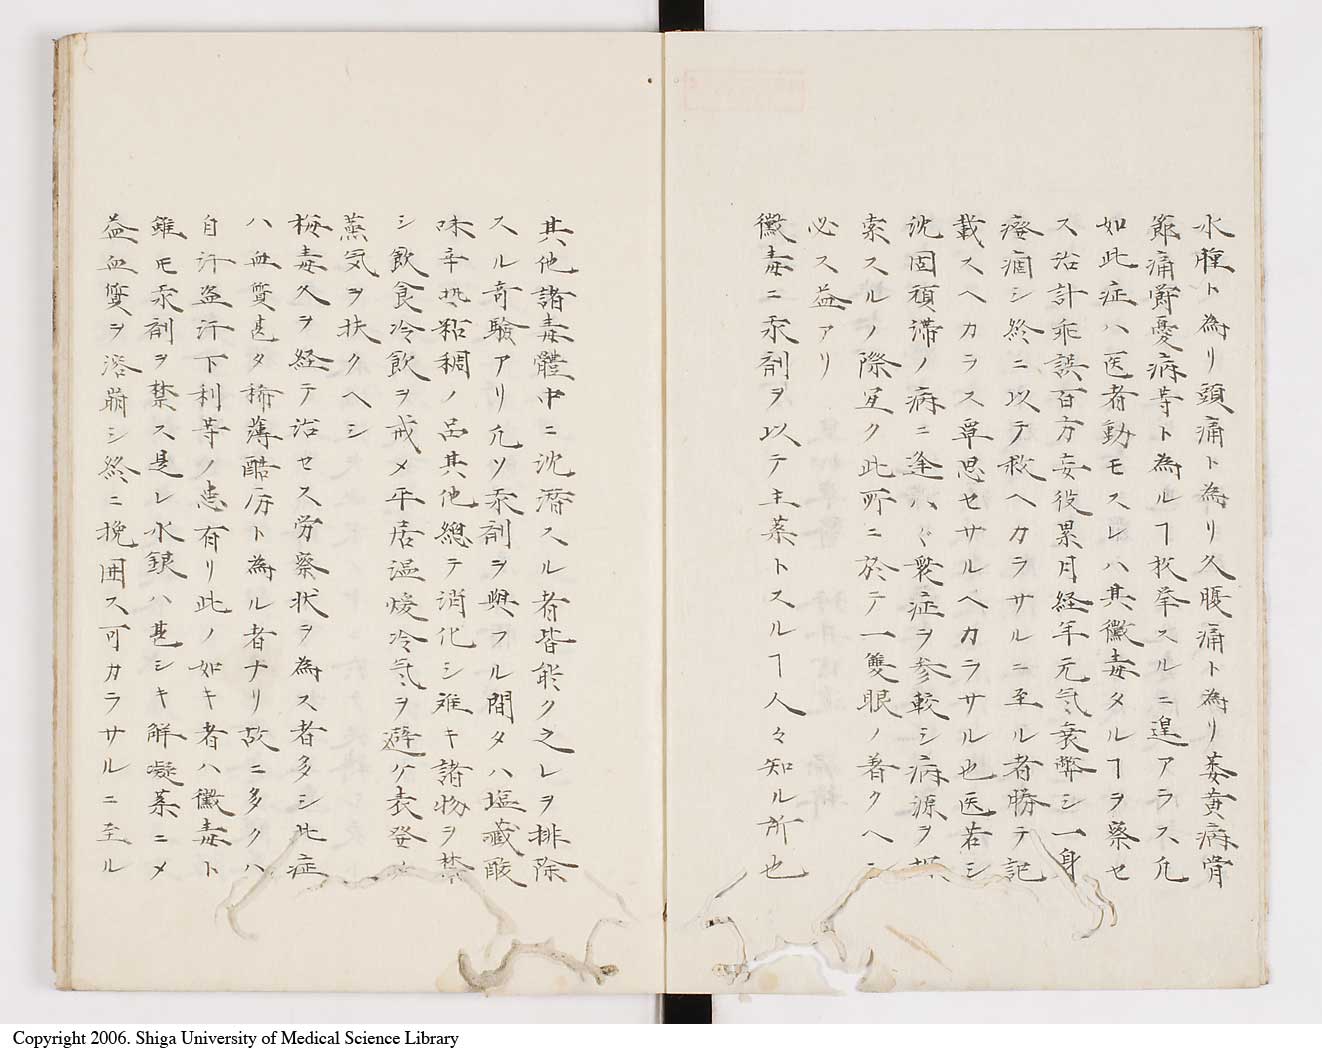 水腫ト為リ頭痛ト為リ久腹痛ト為リ萎黄病骨
節痛欝憂病等ト為ルヿ枚挙スルニ遑アラス凢
如此症ハ医者動モスレハ其黴毒タルヿヲ察セ
ス治計乖誤百方妄役累月経年元気衰弊シ一身
癈痼シ終ニ以テ救ヘカラサルニ至ル者勝テ記
載スヘカラス覃思セサルヘカラサル也医若シ
沈固頑滞ノ病ニ逢ハヾ衆症ヲ参較シ病源ヲ
索スルノ際宜ク此所ニ於テ一雙眼ノ着クヘシ
必ス益アリ
黴毒ニ汞剤ヲ以テ主薬トスルヿ人々知ル所也
其他諸毒體中ニ沈濳スル者皆能ク之レヲ排除
スル奇驗アリ凢ソ汞剤ヲ與フル間タハ塩藏酸
味辛热粘稠ノ品其他總テ消化シ难キ諸物ヲ禁
シ飲食冷飲ヲ戒メ平居温煖冷気ヲ避ケ表發ノ
蒸気ヲ扶クヘシ
梅毒久ヲ経テ治セス労瘵状ヲ為ス者多シ此症
ハ血質甚タ稀薄酷厉ト為ル者ナリ故ニ多クハ
自汗盗汗下利等ノ患有リ此ノ如キ者ハ黴毒ト
雖モ汞剤ヲ禁ス是レ水銀ハ甚シキ解凝薬ニメ
益血質ヲ溶崩シ終ニ挽囬ス可カラサルニ至ル
Copyright 2006. Shiga University of Medical Science Library